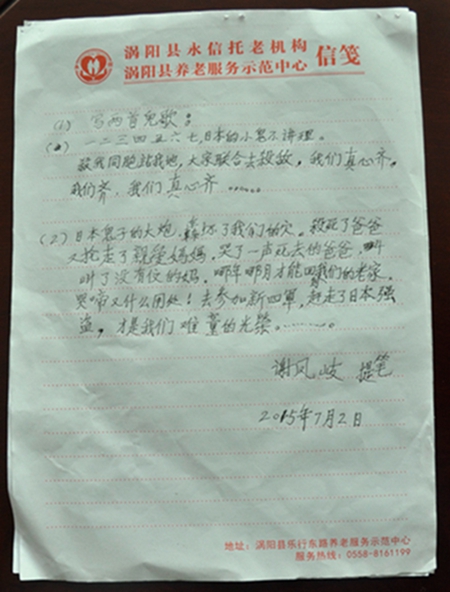 涡阳县永信托老机构
涡阳县养老服务示范中心 信笺
(1) 写两首儿歌：
一二三四五六七，日本的小鬼不讲理。
杀我同胞 我地，大家联合去杀敌，我们真心齐，
我们齐，我们真心齐……
(2) 日本鬼子的大炮，轰坏了我们的穴。杀死了爸爸
又抢走了亲爱妈妈，哭了一声死去的爸爸，叫
叫了没有 的妈，哪年哪月才能回我们的老家，
哭啼又什么用处！去参加新四军，赶走了日本强
盗，才是我们难童的光荣………
谢凤岐 提笔
2015年7月2日
地址：涡阳县乐行东路养老服务示范中心
服务热线：0558-8161199